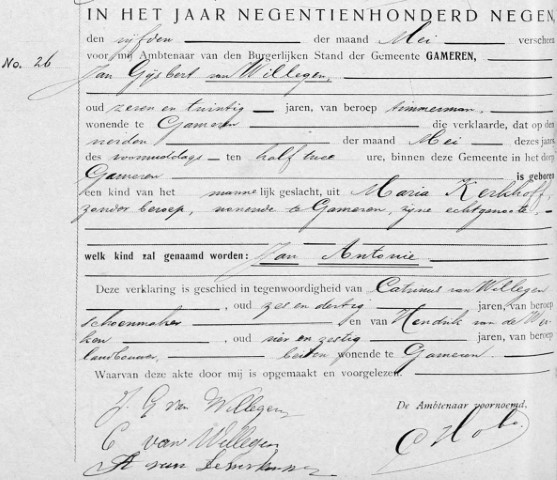 IN HET JAAR NEGENTIENHONDERD NEGEN
den vijfden der maand Mei verscheen
No. 26 voor mij Ambtenaar van den Burgerlijken Stand der Gemeente GAMEREN,
Jan Gijsbert van Willegen,
oud zeven en twintig jaren, van beroep timmerman,
wonende te Gameren die verklaarde, dat op den
vierden der maand Mei dezes jaars
des voormiddags ten half twee ure, binnen deze Gemeente in het dorp
Gameren is geboren
een kind van het mannelijk geslacht, uit Maria Kerkhoff,
zonder beroep, wonende te Gameren, zijne echtgenoote,
welk kind zal genaamd worden: Jan Antonie
Deze verklaring is geschied in tegenwoordigheid van Catrinus van Willegen
, oud zes en dertig jaren, van beroep
schoenmaker en van Hendrik van de Wer-
ken, oud vier en zestig jaren, van beroep
landbouwer, beiden wonende te Gameren.
Waarvan deze akte door mij is opgemaakt en voorgelezen.
J. G van Willegen
De Ambtenaar voornoemd,
C van Willegen
van